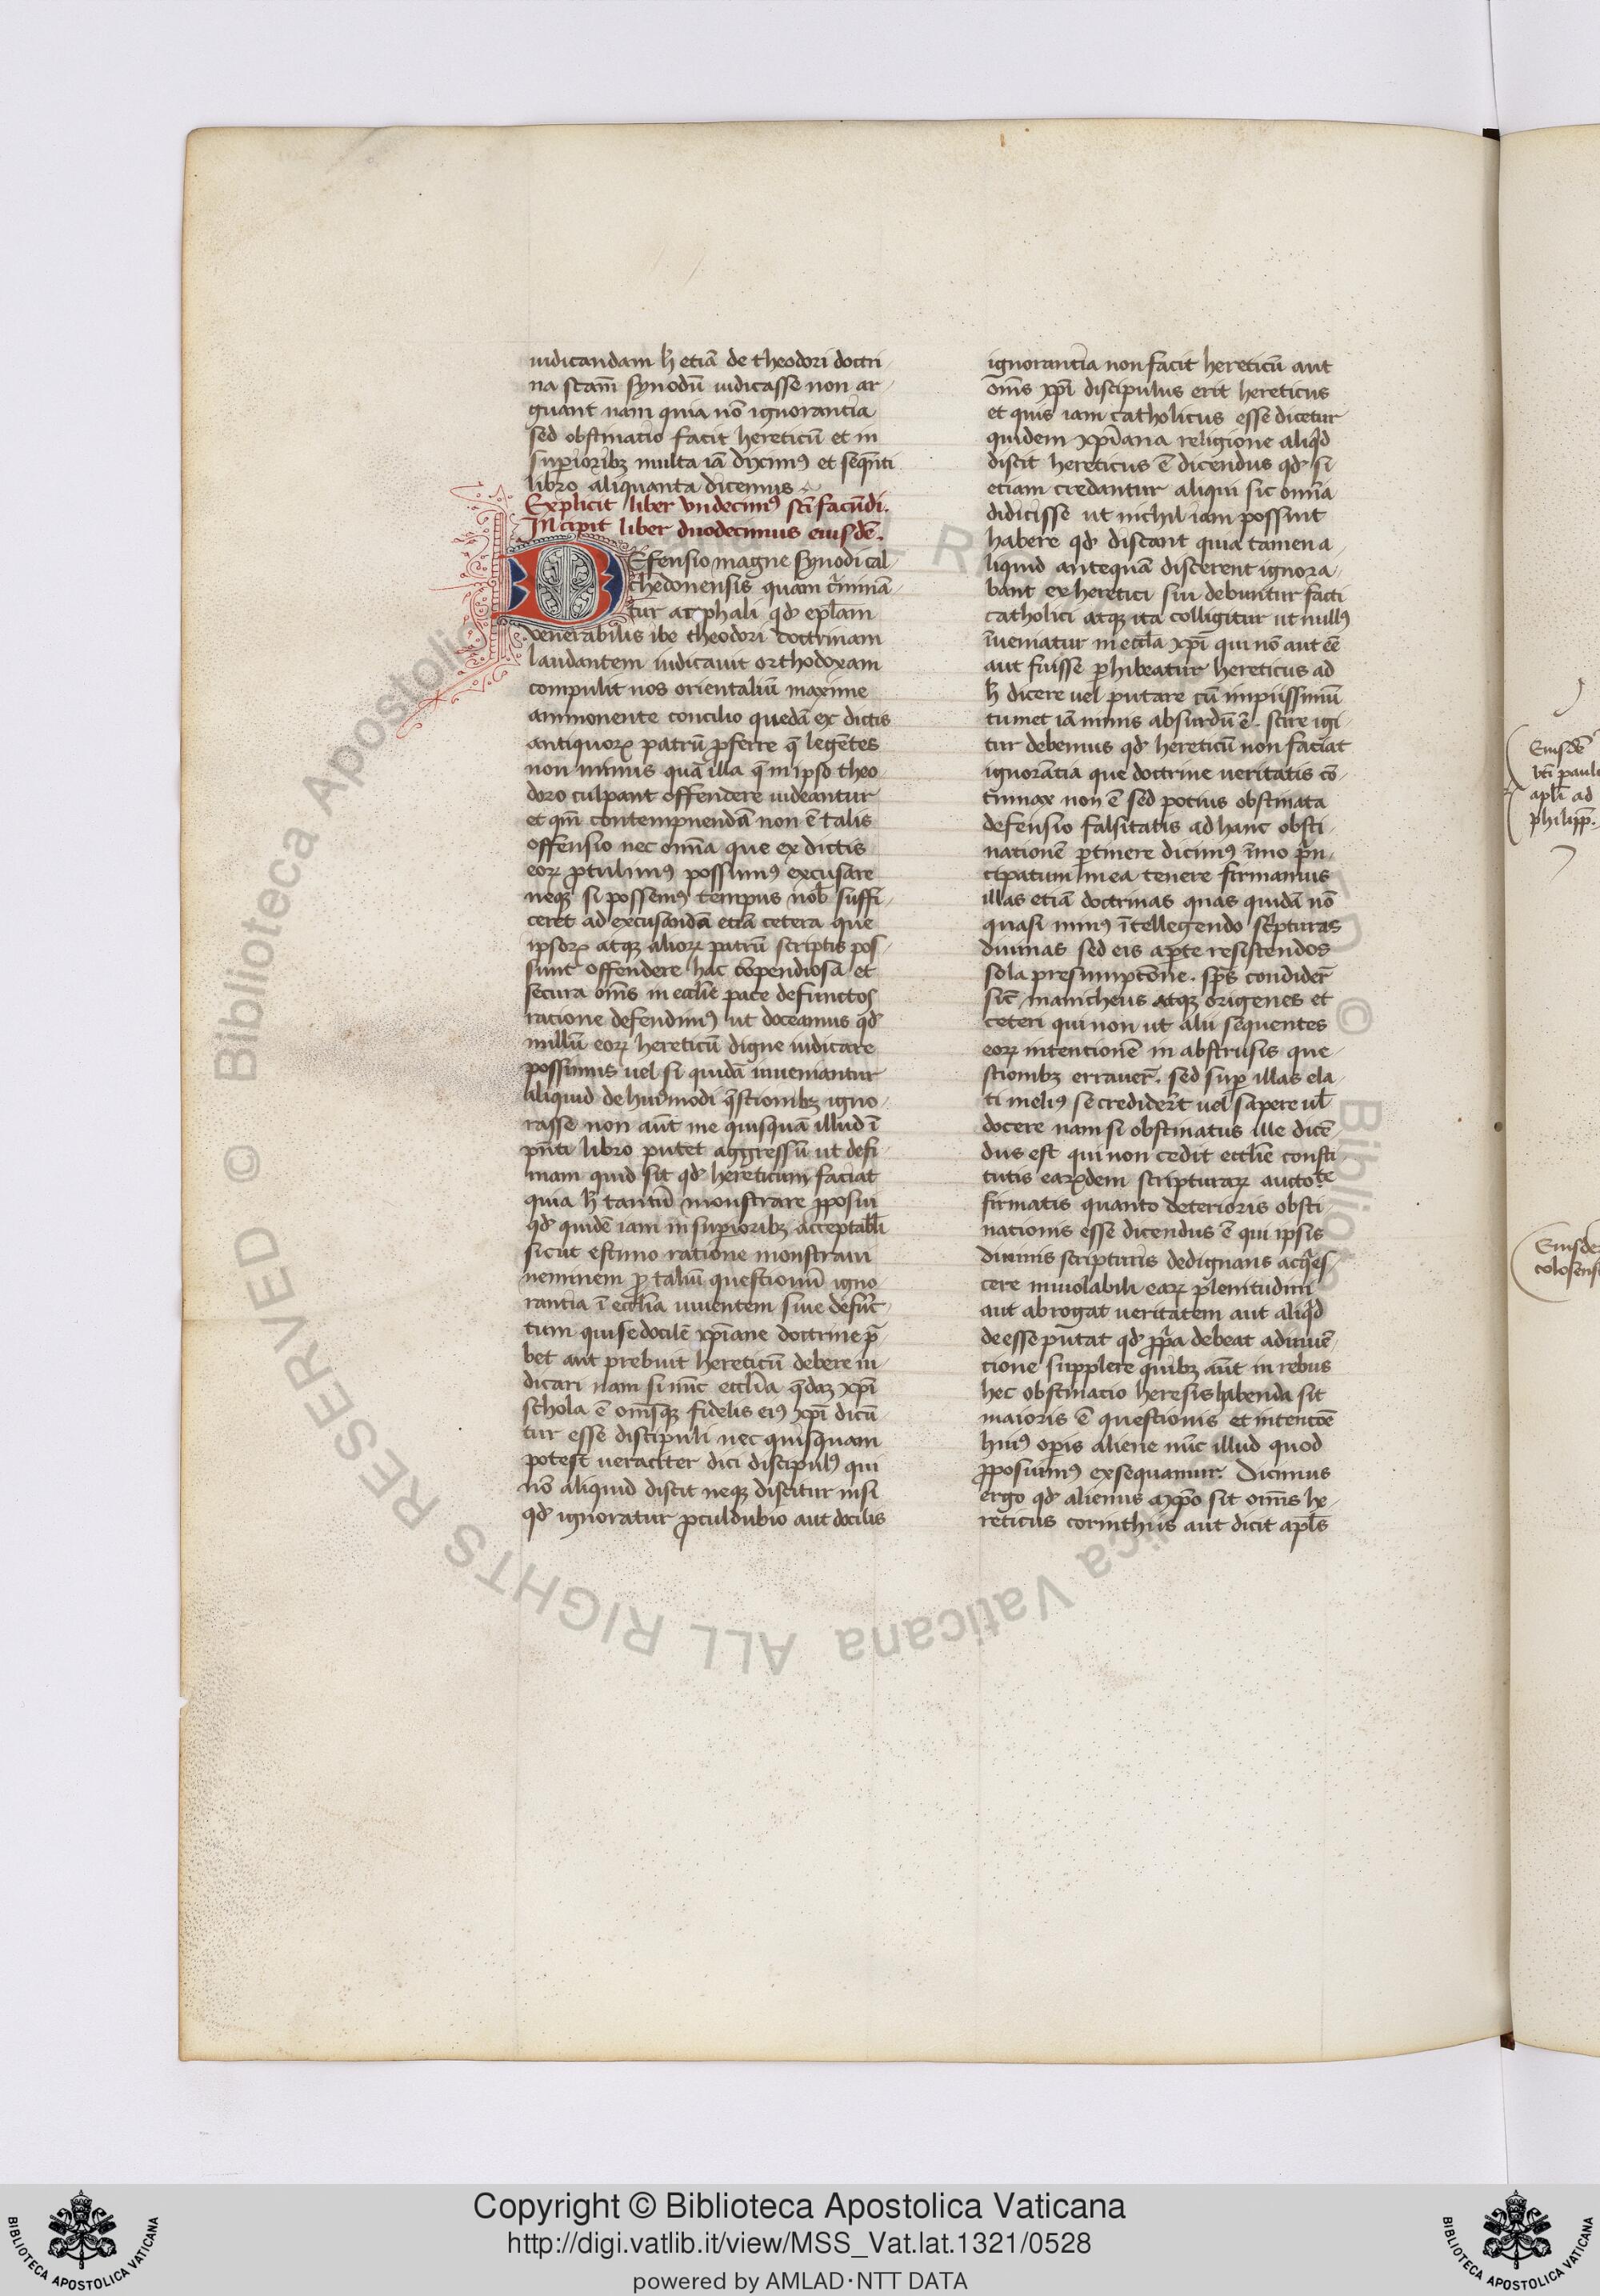 iudicandam hͦ etiā de theodori doctri-
na scām synodū iudicasse non ar-
guant nam quia nō ignorantia
sed obstinatio facit hereticū et in
supioribꝫ multa iā diximꝰ et seqn̄ti
libro aliquanta dicemus
Explicit liber vndecimꝰ sci facūdi.
Incipit liber duodecimus eiusdē.
DEfensio magne synodi cal-
chedonensis quam c̓minā-
tur acephali qd̓ epl̄am
venerabilis ibe theodori doctrinam
laudantem iudicauit orthodoxam
compulit nos orientaliū maxime
ammonente concilio quedā ex dictis
antiquoꝝ patrū ꝓferre q̄ legētes
non minus quā illa q̄ in ipso theo-
doro culpant offendere uideantur
et qm̄ contempnendā non ē talis
offensio nec om̄ia que ex dictis
eoꝝ ꝓtulimꝰ possumꝰ excusare
neqꝫ si possemꝰ tempus nob̄ suffi-
ceret ad excusandā etiā cetera que
ipsoꝝ atqꝫ alioꝝ patrū scriptis pos-
sunt offendere hac ꝯpendiosa et
secura om̄s in eccl̄ie pace defunctos
ratione defendimꝰ ut doceamus qd̓
nullū eoꝝ hereticū digne iudicare
possimus uel si quidā inueniantur
aliquid de huiꝰmodi q̄stionibꝫ igno-
rasse non aūt me quisquā illud ī
pn̄ti libro putet aggressū ut defi-
niam quid sit qd̓ hereticum faciat
quia hͦ tantū monstrare ꝓposui
qd̓ quidē iam in supioribꝫ acceptabl̄i
sicut estimo ratione monstraui
neminem ꝓ taliū questionū igno-
rantia ī eccl̄ia uiuentem siue defūc-
tum qui se docilē xp̄iane doctrine p̄-
bet aut prebuit hereticū debere iu-
dicari nam si nūc eccl̄ia q̄daꝫ xp̄i
schola ē om̄sqꝫ fidelis eiꝰ xp̄i dicū-
tur esse discipuli nec quisquam
potest ueraciter dici discipulꝰ qui
nō aliquid discit neqꝫ discitur nisi
qd̓ ignoratur ꝓculdubio aut docilis
ignorantia non facit hereticū aut
om̄s xp̄i discipulus erit hereticus
et quis iam catholicus esse dicetur
quidem xp̄iana religione aliqd
discit hereticus ē dicendus qd̓ si
etiam credantur aliqui sic om̄ia
didicisse ut nichil iam possint
habere qd̓ discant quia tamen a-
liquid antequā discerent ignora-
bant ex heretici siu debuntur facti
catholici atqꝫ ita colligitur ut nullꝰ
īueniatur in eccl̄ia xp̄i qui nō aut eē
aut fuisse ꝑhibeatur hereticus ad
hͦ dicere uel putare cū impiissimū
tum et iā nimis absurdū ē. scire igi-
tur debemus qd̓ hereticū non faciat
ignorātia que doctrine ueritatis cō-
tumax non ē sed potius obstinata
defensio falsitatis ad hanc obsti-
nationē ꝑtinere dicimꝰ īmo p̄n-
cipatum in ea tenere firmamus
illas etiā doctrinas quas quidā nō
quasi minꝰ ītellegendo scͥpturas
diuinas sed eis aꝑte resistendos
sola presumptōne. sp̄s condider̄
sic̄ manicheus atqꝫ origenes et
ceteri qui non ut alii sequentes
eoꝝ intentionē in abstrusis que-
stionibꝫ erraver̄. sed suꝑ illas ela-
ti meliꝰ se crediderūt uel sapere ul̄
docere nam si obstinatus ille dicē-
dus est qui non cedit eccl̄ie consti-
tutis earūdem scripturaꝝ auctote
firmatis quanto deterioris obsti-
nationis esse dicendus ē qui ipsis
diuinis scripturis dedignans acq̄es-
cere inuiolabili eaꝝ plenitudini
aut abrogat ueritatem aut aliqd
de esse putat qd̓ ꝓpͥa debeat adinuē-
tione supplere quibꝫ aūt in rebus
hec obstinatio heresis habenda sit
maioris ē questionis et intentōē
huiꝰ opis aliene nūc illud quod
ꝓposuimꝰ exsequamur. Dicimus
ergo qd̓ alienus a xp̄o sit om̄s he-
reticus corinthiis aut dicit apl̄s
Eiusdē
bti̅ pauli
apl̄i ad
philipp̄.
Eiusde
colosens
Copyright © Biblioteca Apostolica Vaticana
http://digi.vatlib.it/view/MSS_Vat.lat.1321/0528
powered by AMLAD·NTT DATA
BIBLIOTECA APOSTOLICA VATICANA
BIBLIOTECA APOSTOLICA VATICANA